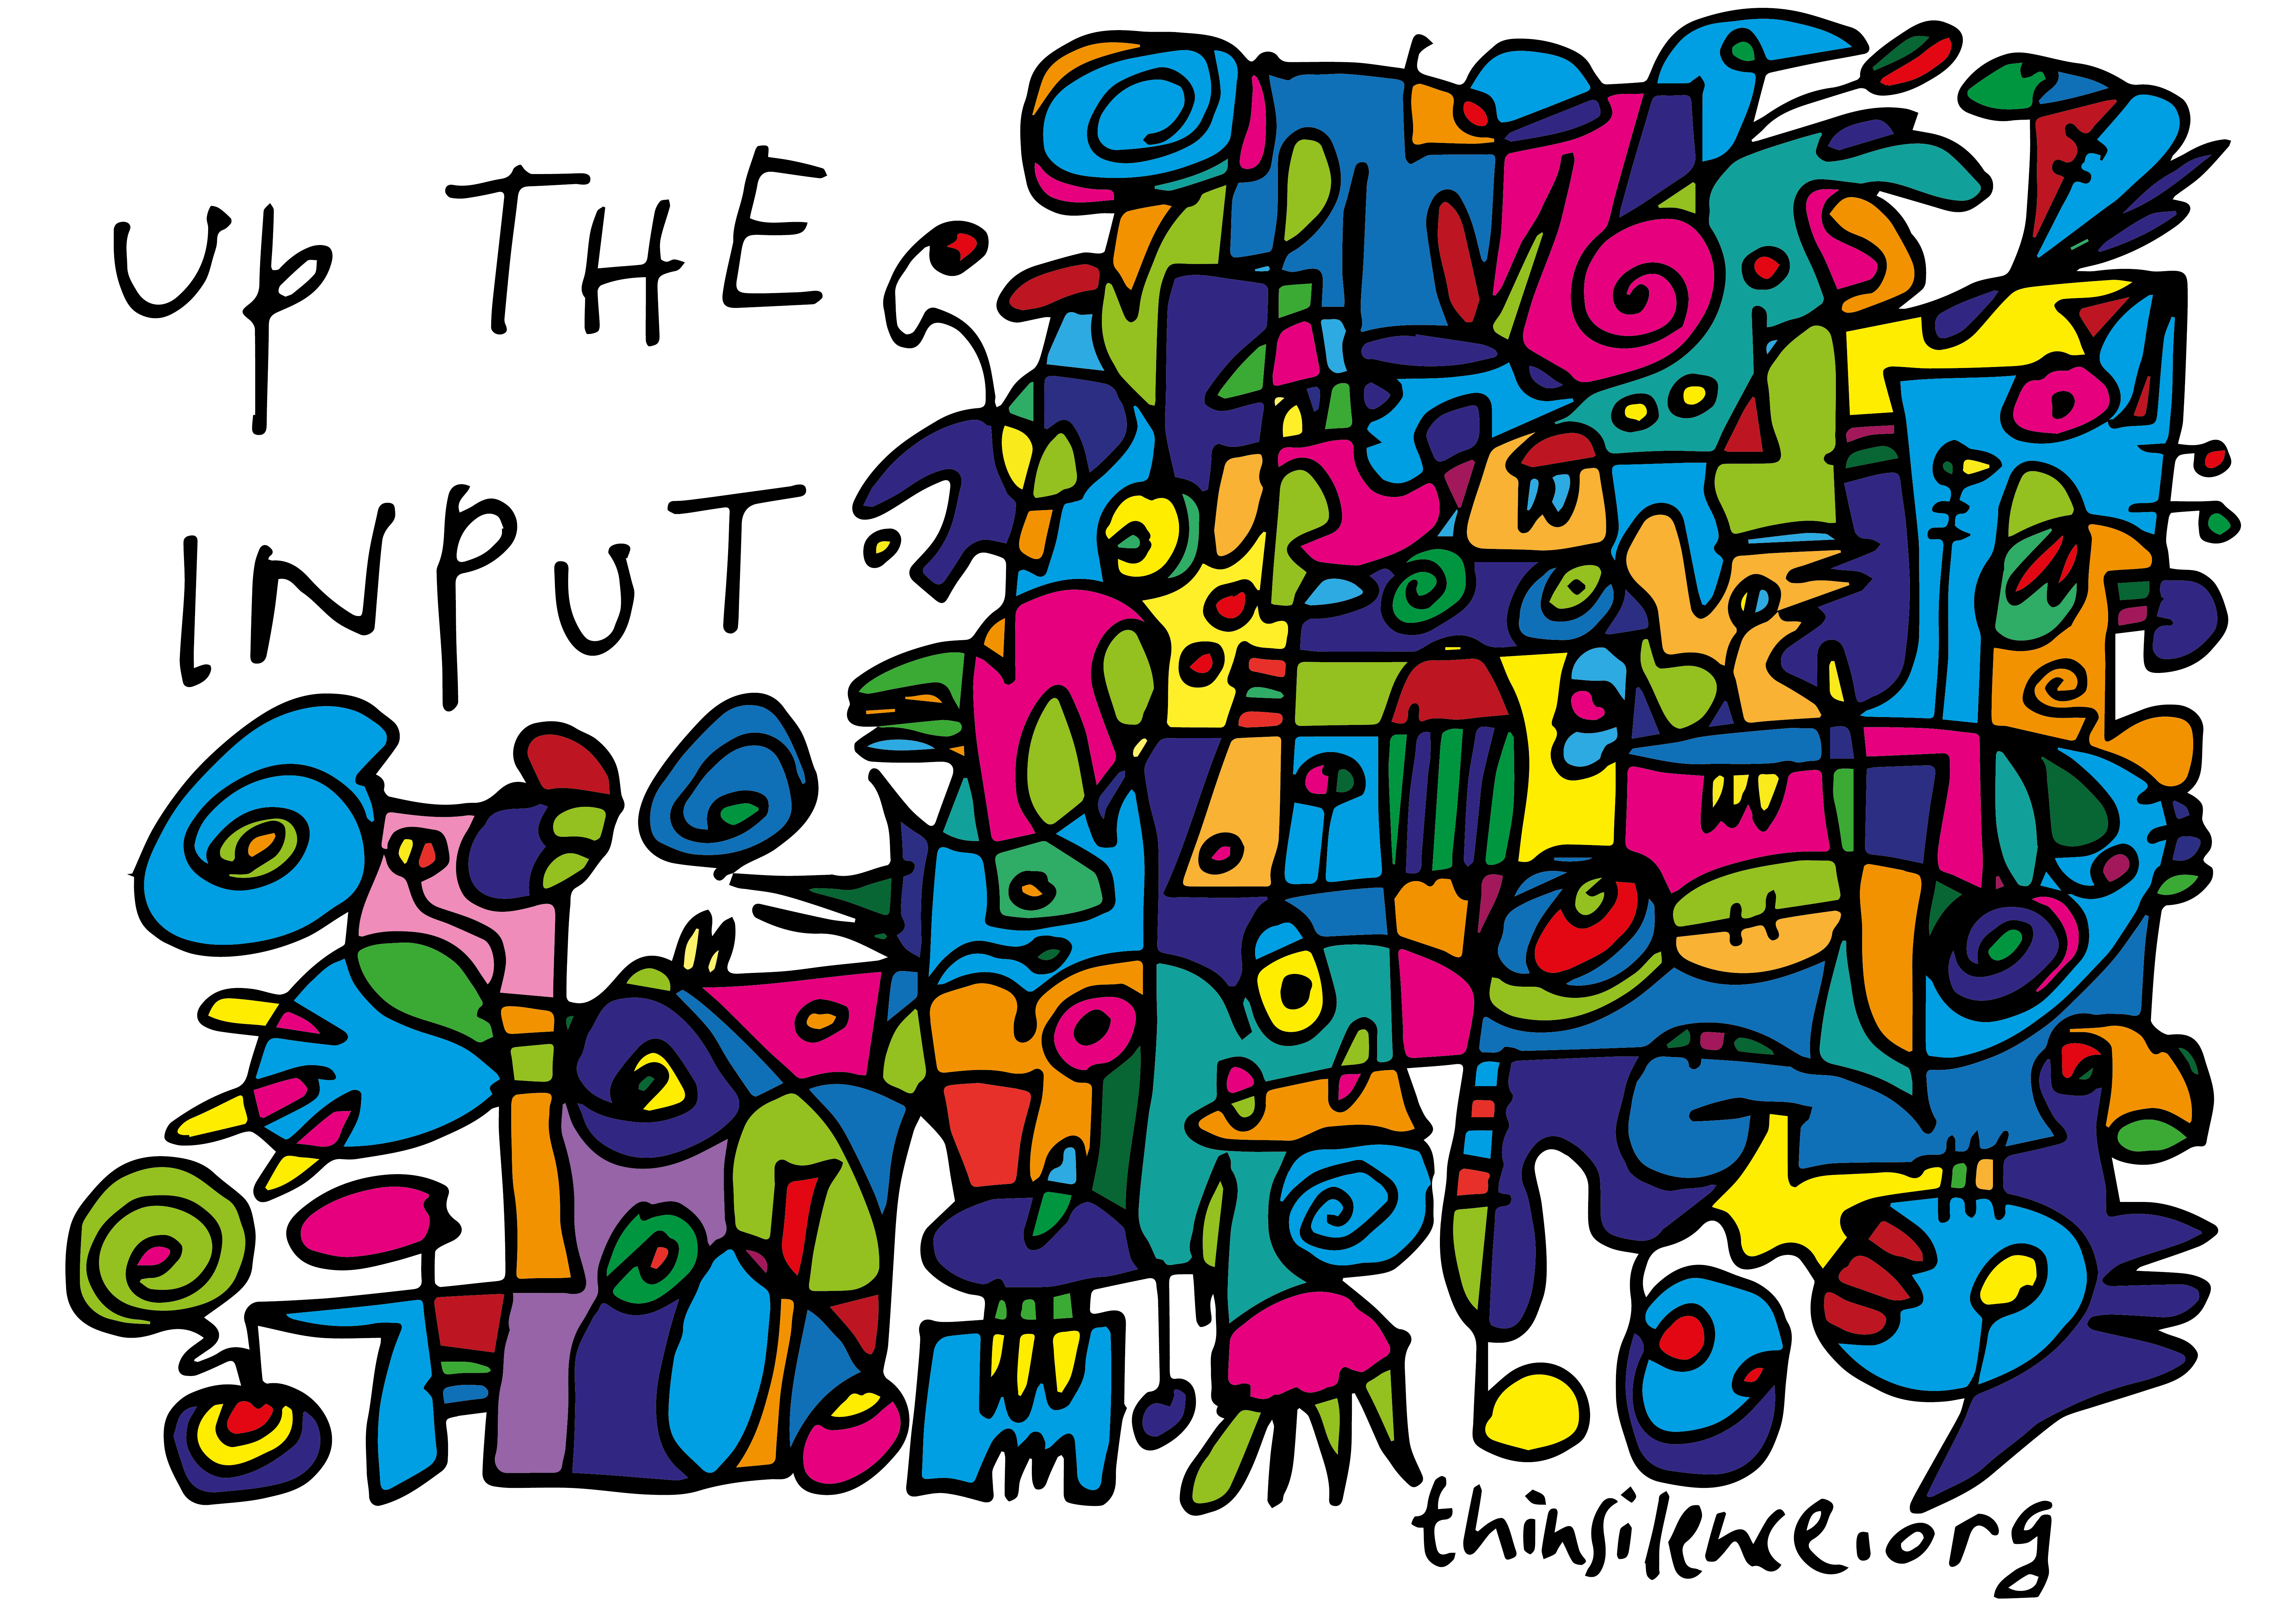 UP THE
INPUT
thinsilence.org